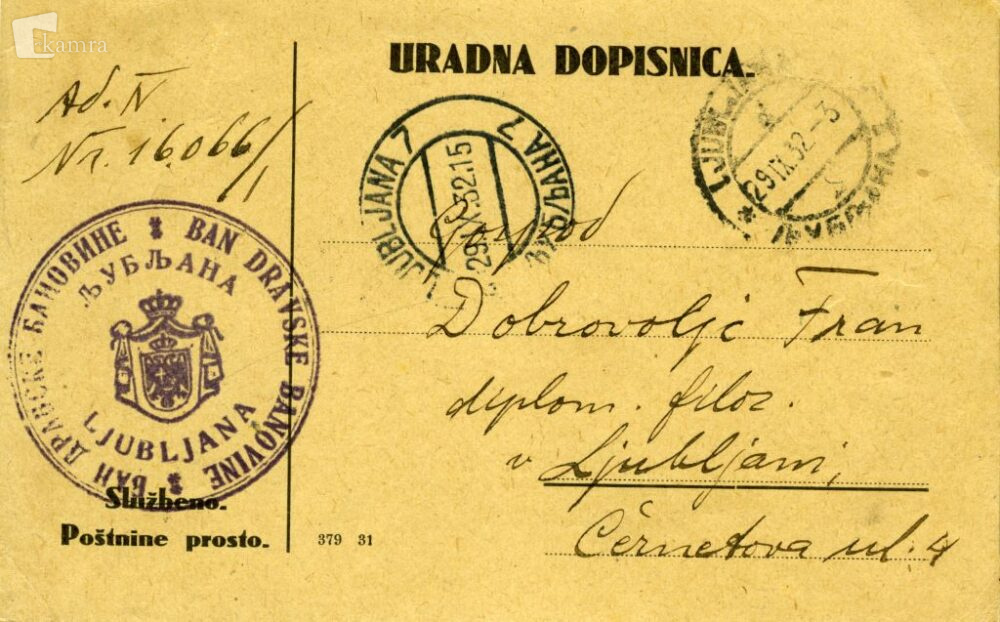 kamra
URADNA DOPISNICA.
Ad. N
Nr. 16.066/1
LJUBLJANA 7
ЉУБЉАНА 7
29.IX.32.15
LJUBLJANA
ЉУБЉАНА
29 IX 32 - 3
BAN DRAVSKE BANOVINE
БАН ДРАВСКЕ БАНОВИНЕ
ЉУБЉАНА
LJUBLJANA
Gospod
Dobrovoljc Fran
diplom. filoz.
v Ljubljani,
Černetova ul. 4
Službeno.
Poštnine prosto.
379 31